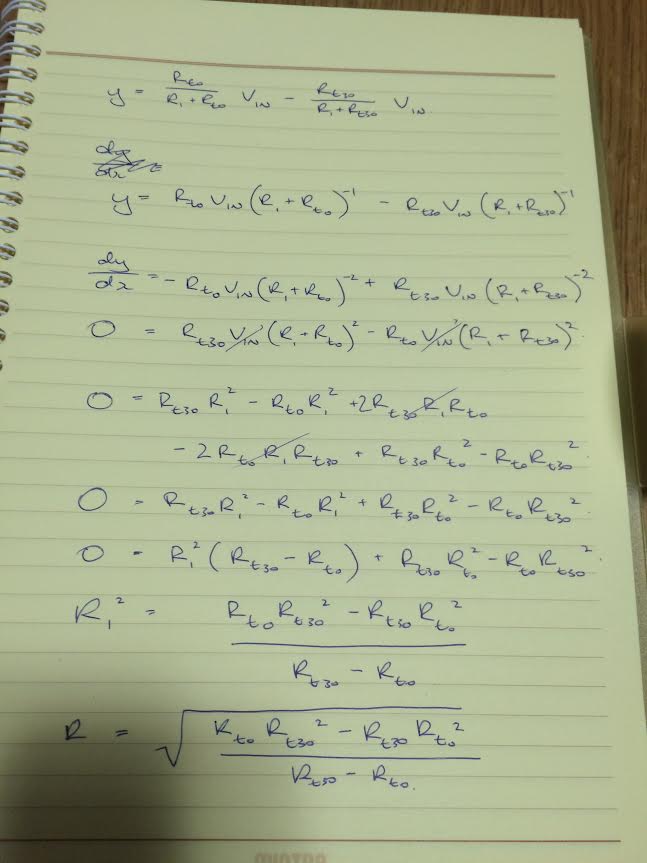 y = R_t0/(R_1 + R_t0) V_IN − R_t30/(R_1 + R_t30) V_IN
dy/dx
y = R_t0 V_IN (R_1 + R_t0)^-1 − R_t30 V_IN (R_1 + R_t30)^-1
dy/dx = − R_t0 V_IN (R_1 + R_t0)^-2 + R_t30 V_IN (R_1 + R_t30)^-2
0 = R_t30 V_IN (R_1 + R_t0)^2 − R_t0 V_IN (R_1 + R_t30)^2
0 = R_t30 R_1^2 − R_t0 R_1^2 + 2R_t30 R_1 R_t0
− 2R_t0 R_1 R_t30 + R_t30 R_t0^2 − R_t0 R_t30^2
0 = R_t30 R_1^2 − R_t0 R_1^2 + R_t30 R_t0^2 − R_t0 R_t30^2
0 = R_1^2 (R_t30 − R_t0) + R_t30 R_t0^2 − R_t0 R_t30^2
R_1^2 = (R_t0 R_t30^2 − R_t30 R_t0^2)/(R_t30 − R_t0)
R = √((R_t0 R_t30^2 − R_t30 R_t0^2)/(R_t30 − R_t0))